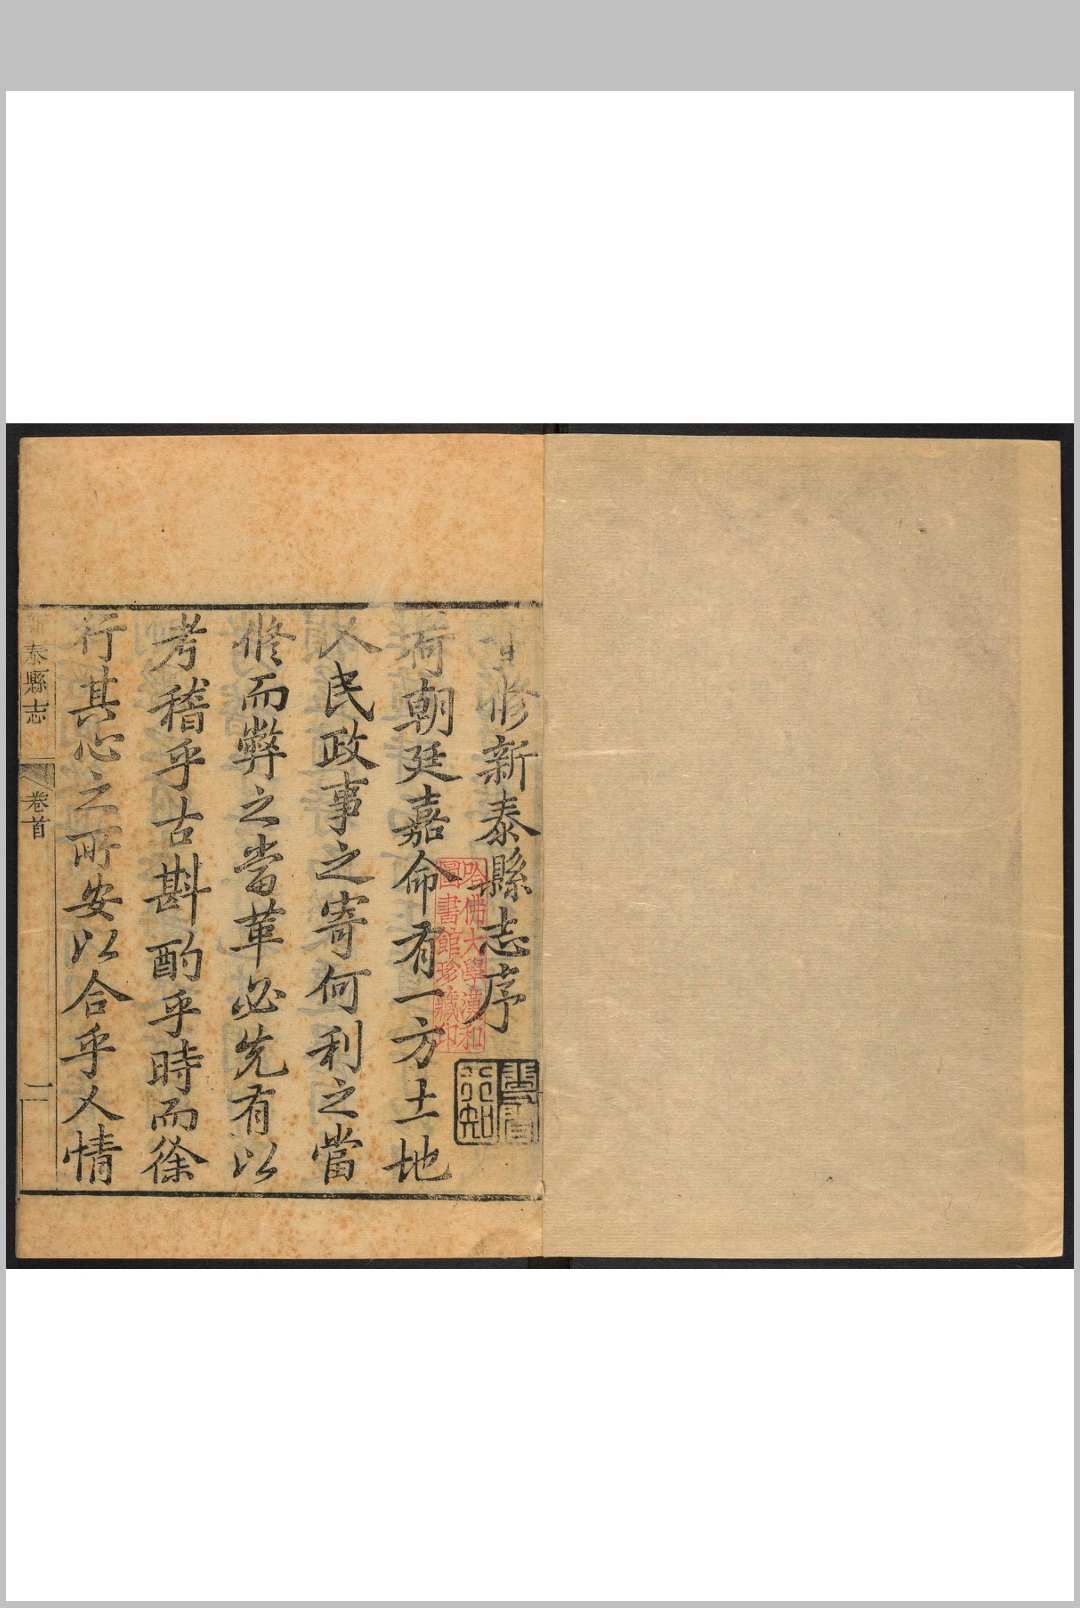 修新泰縣志序
荷朝廷嘉命有一方土地
人民政事之寄何利之當
修而弊之當革必先有以
考稽乎古斟酌乎時而徐
行其心之所安以合乎人情
泰縣志 卷首 一
哈佛大學漢和
圖書館珍藏印